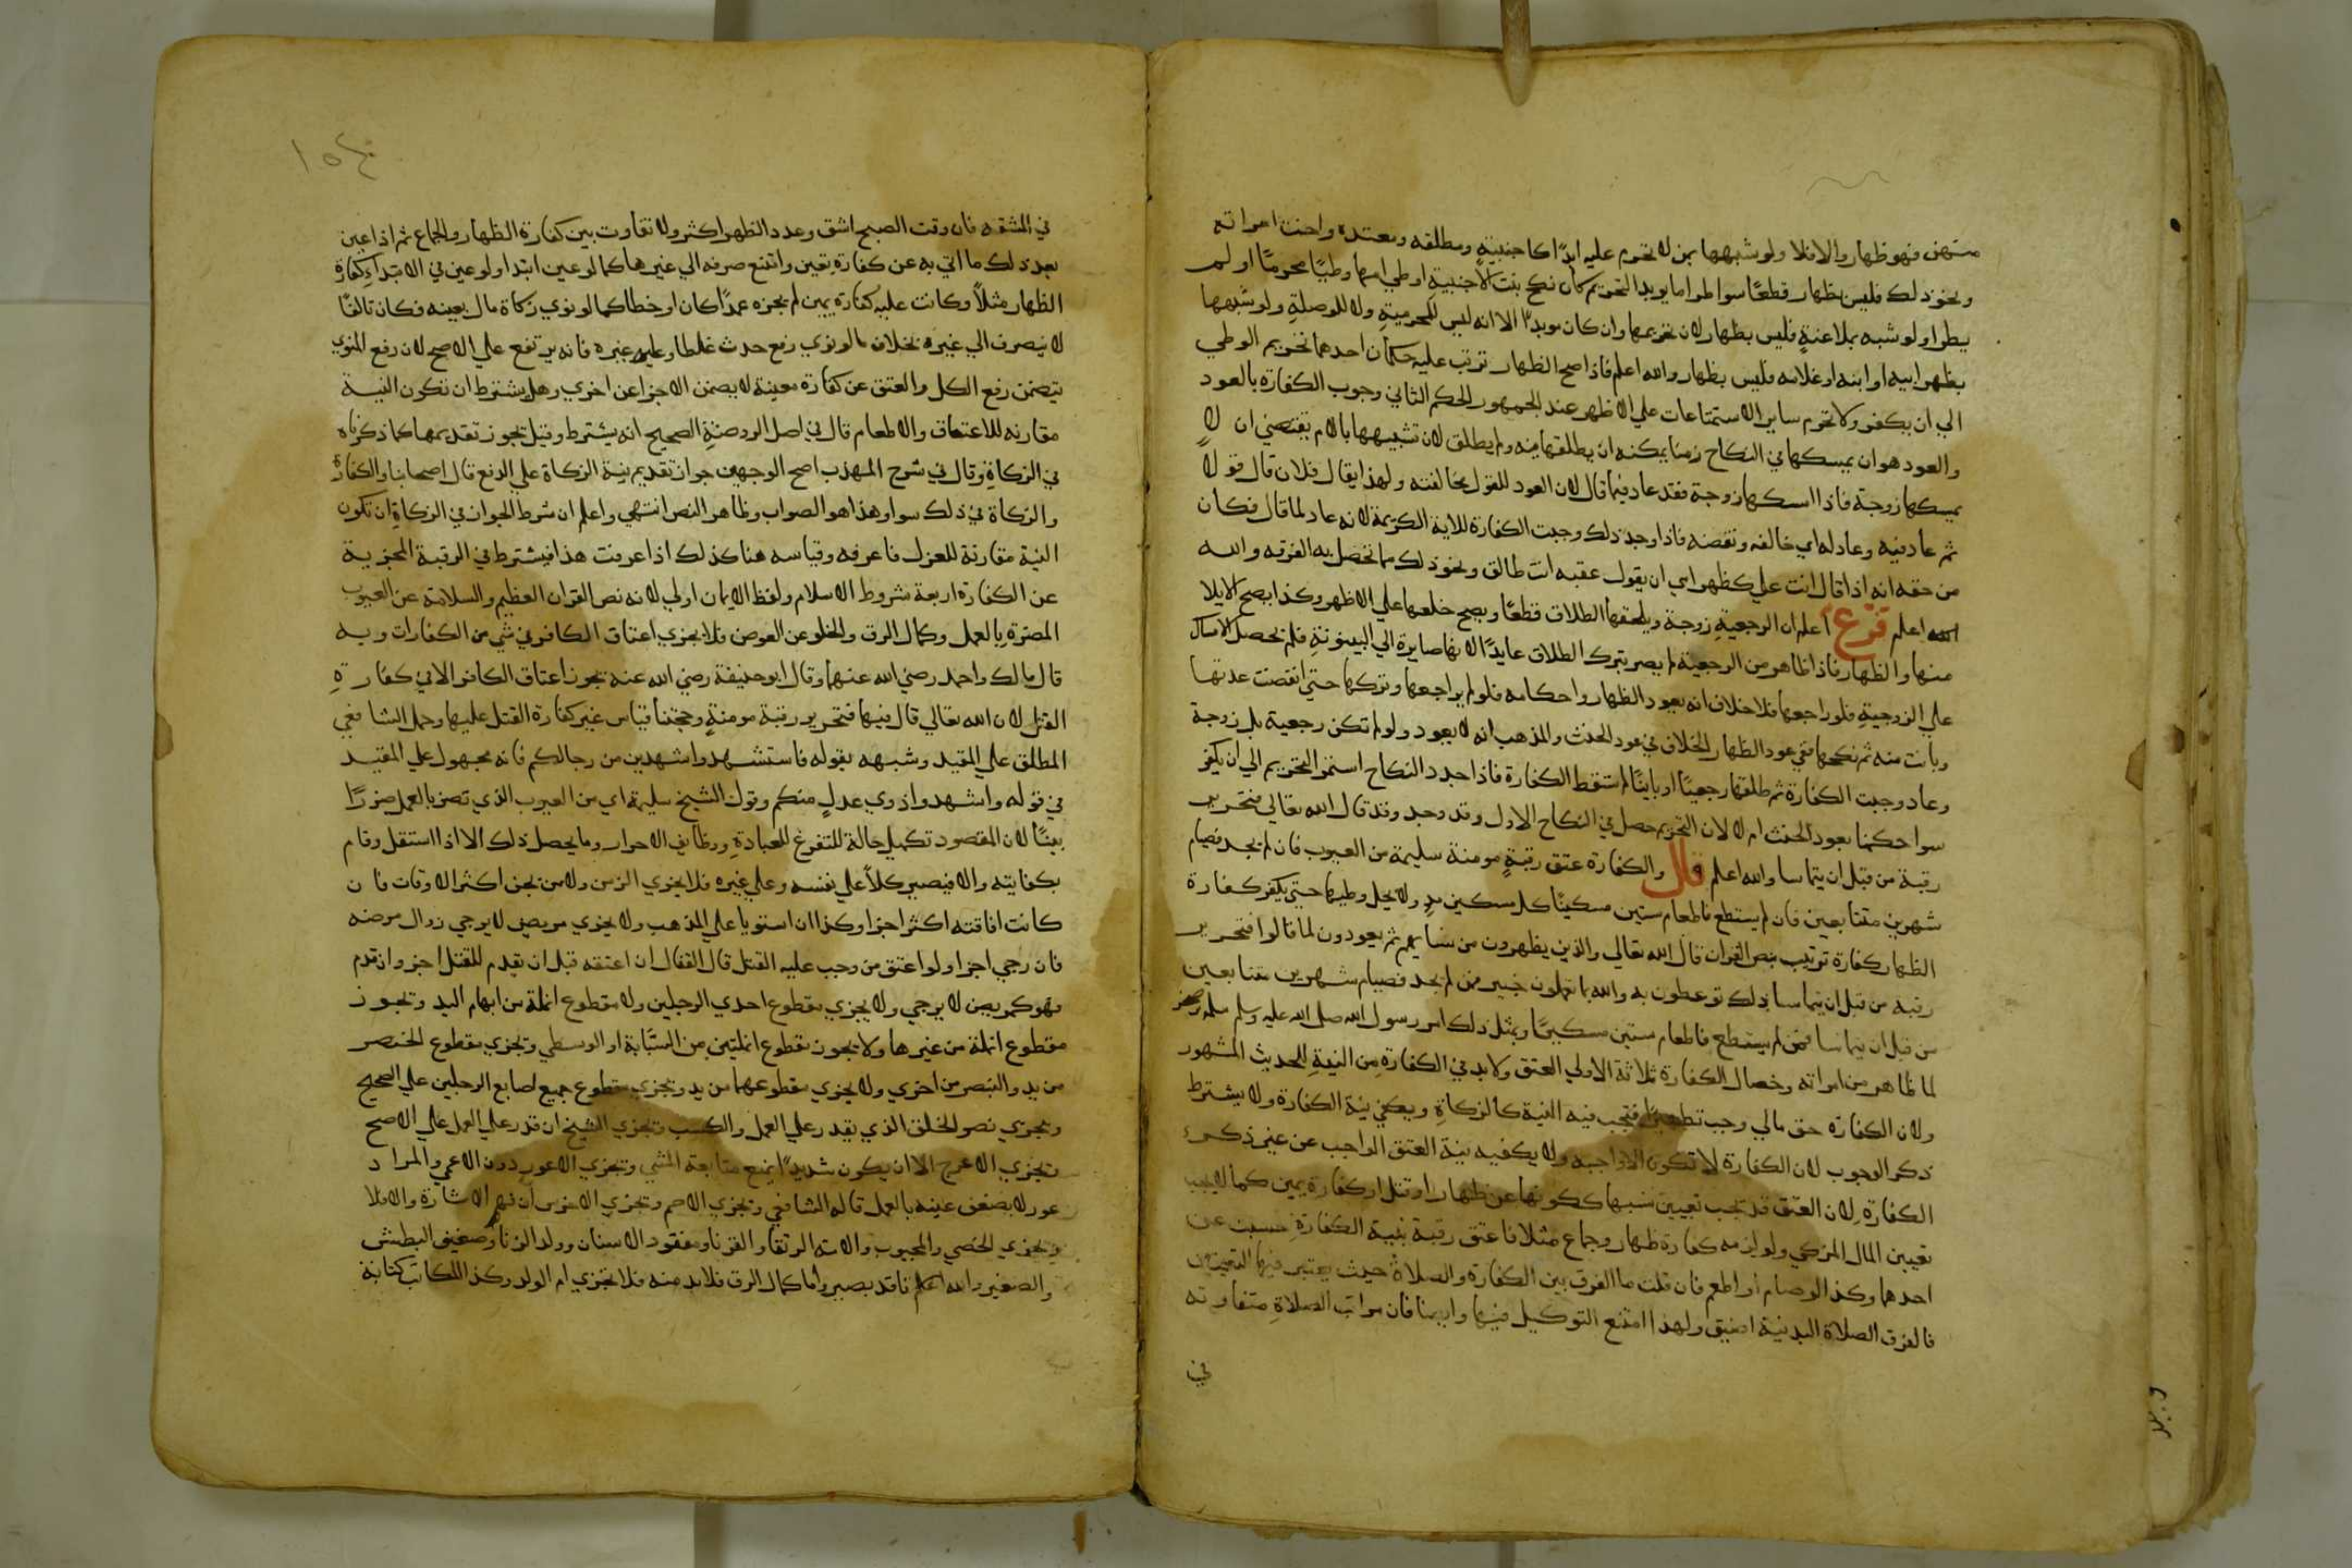 منهن فهو ظهار والا فلا ولو شبهها بمن لا تحرم عليه ابدًا كاجنبيةٍ ومطلقه ومعتده واخت امراته
ونحو ذلك فليس بظهار قطعًا سوا طرا ما يويد التحريم كان نكح بنت الاجنبية او وطي امها وطيًا محرمًا او لم
يطرا ولو شبه بملاعنةٍ فليس بظهار لان تحريمها وان كان موبدًا الا انه ليس للمحرميةِ ولا للوصلةِ ولو شبهها
بظهر ابيه او ابنه او غلامه فليس بظهار والله اعلم فاذا صح الظهار ترتب عليه حكمان احدهما تحريم الوطي
الي ان يكفر ولا تحرم ساير الاستمتاعات علي الاظهر عند الجمهور الحكم الثاني وجوب الكفارة بالعود
والعود هو ان يمسكها في النكاح زمنًا يمكنه ان يطلقها فيه ولم يطلق لان تشبيهها بالام يقتضي ان لا
يمسكها زوجة فاذا امسكها زوجة فقد عاد فيما قال لان العود للقول مخالفته ولهذا يقال فلان قال قولا
ثم عاد فيه وعاد له اي خالفه ونقضه فاذا وجد ذلك وجبت الكفارة للاية الكريمة لانه عاد لما قال فكان
من حقه انه اذا قال انت علي كظهر امي ان يقول عقبه انت طالق ونحو ذلك مما تحصل به الفرقه والله
الله اعلم فرع اعلم ان الرجعيةِ زوجة ويلحقها الطلاق قطعًا ويصح خلعها علي الاظهر وكذا يصح الايلا
منها والظهار فاذا ظاهر من الرجعية لم يصر بترك الطلاق عايدًا لانها صايرة الي البينونةِ فلم يحصل الامساك
علي الزوجيةِ فلو راجعها فلا خلاف انه يعود الظهار واحكامه فلو لم يراجعها وتركها حتي انقضت عدتها
وبانت منه ثم نكحها ففي عود الظهار الخلاف في عود الحنث والمذهب انه لا يعود ولو لم تكن رجعية بل زوجة
وعاد وجبت الكفارة ثم طلقها رجعيًا او باينًا لم تسقط الكفارة فاذا جدد النكاح استمر التحريم الي ان يكفر
سوا حكمنا بعود الحنث ام لا لان التحريم حصل في النكاح الاول وقد وجد وقد قال الله تعالي فتحرير
رقبة من قبل ان يتماسا والله اعلم قال والكفارة عتق رقبةٍ مومنة سليمة من العيوب فان لم يجد فصيام
شهرين متتابعين فان لم يستطع فاطعام ستين مسكينًا كل مسكين مدٍ ولا يحل وطيها حتي يكفر كفارة
الظهار كفارة ترتيب بنص القران قال الله تعالي والذين يظهرون من نسايهم ثم يعودون لما قالوا فتحرير
رقبه من قبل ان يتماسا ذلك توعظون به والله بما تعملون خبير فمن لم يجد فصيام شهرين متتابعين
من قبل ان يتماسا فمن لم يستطع فاطعام ستين مسكينًا وبمثل ذلك امر رسول الله صلى الله عليه وسلم سلمه بن صخر
لما ظاهر من امراته وخصال الكفارة ثلاثة الاولي العتق ولا بد في الكفارةِ من النيةِ للحديث المشهور
ولان الكفاره حق مالي وجب تطهيرًا فتجب فيه النية كالزكاةِ ويكفي نية الكفارة ولا يشترط
ذكر الوجوب لان الكفارة لا تكون الا واجبه ولا يكفيه نية العتق الواجب عن غير ذكر
الكفارةِ لان العتق قد تجب تعيين سببها ككونها عن ظهار او قتل او كفارة يمين كما لا يجب
تعيين المال المزكي ولو لزمه كفارة ظهار وجماع مثلا فاعتق رقبة بنية الكفارةِ حسبت عن
احدهما وكذا لو صام او اطعم فان قلت ما الفرق بين الكفارة والصلاة حيث يعتبر فيها التعيين
فالفرق الصلاة البدنية اضيق ولهذا امتنع التوكيل فيها وايضا فان مراتب الصلاةِ متفاوته
في
١٥٤
في المشقه فان وقت الصبح اشق وعدد الظهر اكثر ولا تفاوت بين كفارة الظهار والجماع ثم اذا عين
بعد ذلك ما اتي به عن كفارةٍ تعين وامتنع صرفه الي غيرها كما لو عين ابتدا ولو عين في الابتداءِ كفارة
الظهار مثلًا وكانت عليه كفارة يمين لم يجزه عمدًا كان او خطا كما لو نوي زكاة مال بعينه فكان تالفًا
لا ينصرف الي غيره بخلاف ما لو نوي رفع حدث غلطا وعليه غيره فانه يرتفع علي الاصح لان رفع المنوي
يتضمن رفع الكل والعتق عن كفارة معينة لا يضمن الاجزا عن اخري وهل يشترط ان تكون النية
مقارنه للاعتاق والاطعام قال في اصل الروضةِ الصحيح انه يشترط وقيل تجوز تقديمها كما ذكرناه
في الزكاةِ وقال في شرح المهذب اصح الوجهين جواز تقديم نية الزكاة علي الدفع قال اصحابنا والكفارة
والزكاة في ذلك سوا وهذا هو الصواب وظاهر النص انتهي واعلم ان شرط الجواز في الزكاةِ ان تكون
النية مقارنة للعزل فاعرفه وقياسه هنا كذلك اذا عرفت هذا فيشترط في الرقبة المجزية
عن الكفارة اربعة شروط الاسلام ولفظ الايمان اولي لانه نص القران العظيم والسلامة عن العيوب
المضرةِ بالعمل وكمال الرق والخلو عن العوض فلا يجزي اعتاق الكافر في شي من الكفارات وبه
قال مالك واحمد رضي الله عنهما وقال ابو حنيفة رضي الله عنه تجوز اعتاق الكافر الا في كفارةِ
القتل لان الله تعالي قال فيها فتحرير رقبة مومنةٍ وحجتنا قياس غير كفارة القتل عليها وحمل الشافعي
المطلق علي المقيد وشبهه بقوله فاستشهدوا شهدين من رجالكم فانه محمول علي المقيد
في قوله واشهدوا ذوي عدلٍ منكم وقول الشيخ سليمة اي من العيوب الذي تضر بالعمل ضررًا
بينًا لان المقصود تكميل حاله للتفرغ للعبادةِ ووظايف الاحرار وما يحصل ذلك الا اذا استقل وقام
بكفايته والا فيصير كلًا علي نفسه وعلي غيره فلا يجزي الزمن ولا من تجن اكثر الاوقات فان
كانت افاقته اكثر اجزا وكذا ان استويا علي المذهب ولا يجزي مريض لا يرجي زوال مرضه
فان رجي اجزا ولو اعتق من وجب عليه القتل قال القفال ان اعتقه قبل ان يقدم للقتل اجزا وان قدم
فهو كمريض لا يرجي ولا يجزي مقطوع احدي الرجلين ولا مقطوع انملة من ابهام اليد وتجوز
مقطوع انملة من غيرها ولا يجوز مقطوع انملتين من السبَّابة او الوسطي وتجزي مقطوع الخنصر
من يد والبنصر من اخري ولا يجزي مقطوعهما من يد وتجزي مقطوع جميع اصابع الرجلين علي الصحيح
وتجزي نضو الخلق الذي يقدر علي العمل والكسب وتجزي الشيخ ان قدر علي العمل علي الاصح
وتجزي الاعرج الا ان يكون شديدًا يمنع متابعة المشي وتجزي الاعور دون الاعمي والمراد
عور لا يضعف عينه بالعمل قاله الشافعي وتجزي الاصم وتجزي الاخرس ان فهم الاشارة والا فلا
وتجزي الخصي والمجبوب والامة الرتقا والقرنا ومفقود الاسنان وولد الزنا وضعيف البطش
والصغير والله اعلم ناقد بصير واما كمال الرق فلا بد منه فلا تجزي ام الولد وكذا المكاتب كتابة